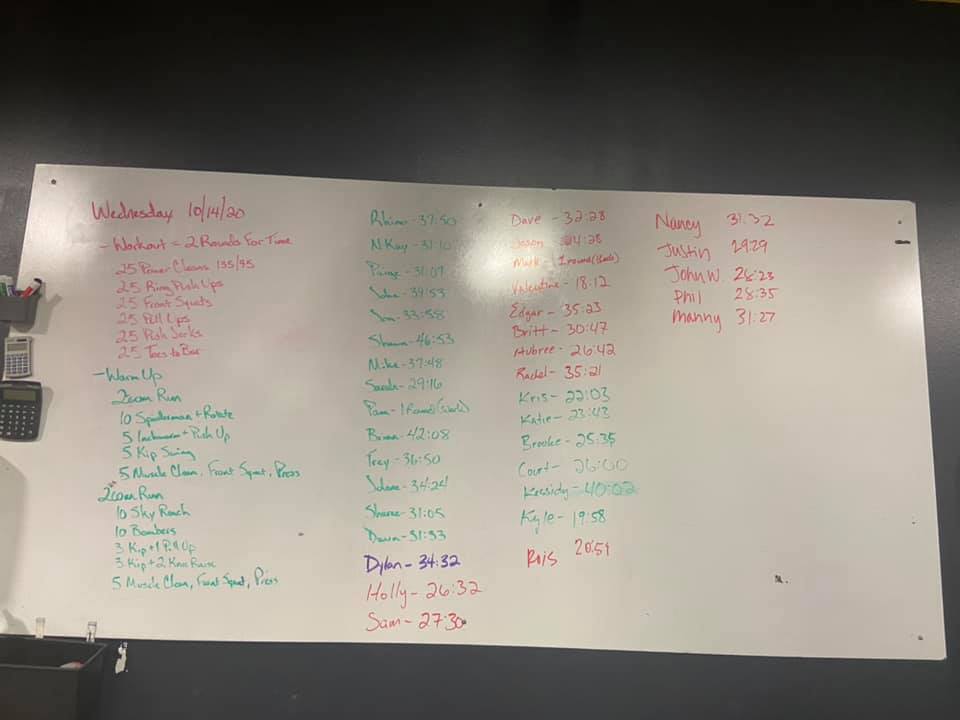 Wednesday 10/14/20
- Workout = 2 Rounds For Time
25 Power Cleans 135/95
25 Ring Push Ups
25 Front Squats
25 Pull Ups
25 Push Jerks
25 Toes to Bar
- Warm Up
200m Run
10 Spiderman + Rotate
5 Inchworm + Push Up
5 Kip Swing
5 Muscle Clean, Front Squat, Press
200m Run
10 Sky Reach
10 Bombers
3 Kip + 1 Pull Up
3 Kip + 2 Knee Raise
5 Muscle Clean, Front Squat, Press
Rhino - 37:50
N.Kay - 31:10
Paige - 31:07
39:53
33:58
Shawn - 46:53
Mike - 37:48
Sarah - 29:16
Pam - 1 Round
Brian - 42:08
Trey - 36:50
34:24
Sharee - 31:05
Dawn - 31:33
Dylan - 34:32
Holly - 26:32
Sam - 27:30
Dave - 32:28
Jason - 24:28
Mark - 1 round
Valentine - 18:12
Edgar - 35:23
Britt - 30:47
Aubree - 26:42
Rachel - 35:21
Kris - 22:03
Katie - 23:43
Brooke - 25:35
Court - 26:00
Kassidy - 40:02
Kyle - 19:58
20:59
Nancy 31:32
Justin 29:29
John W. 26:23
Phil 28:35
Manny 31:27